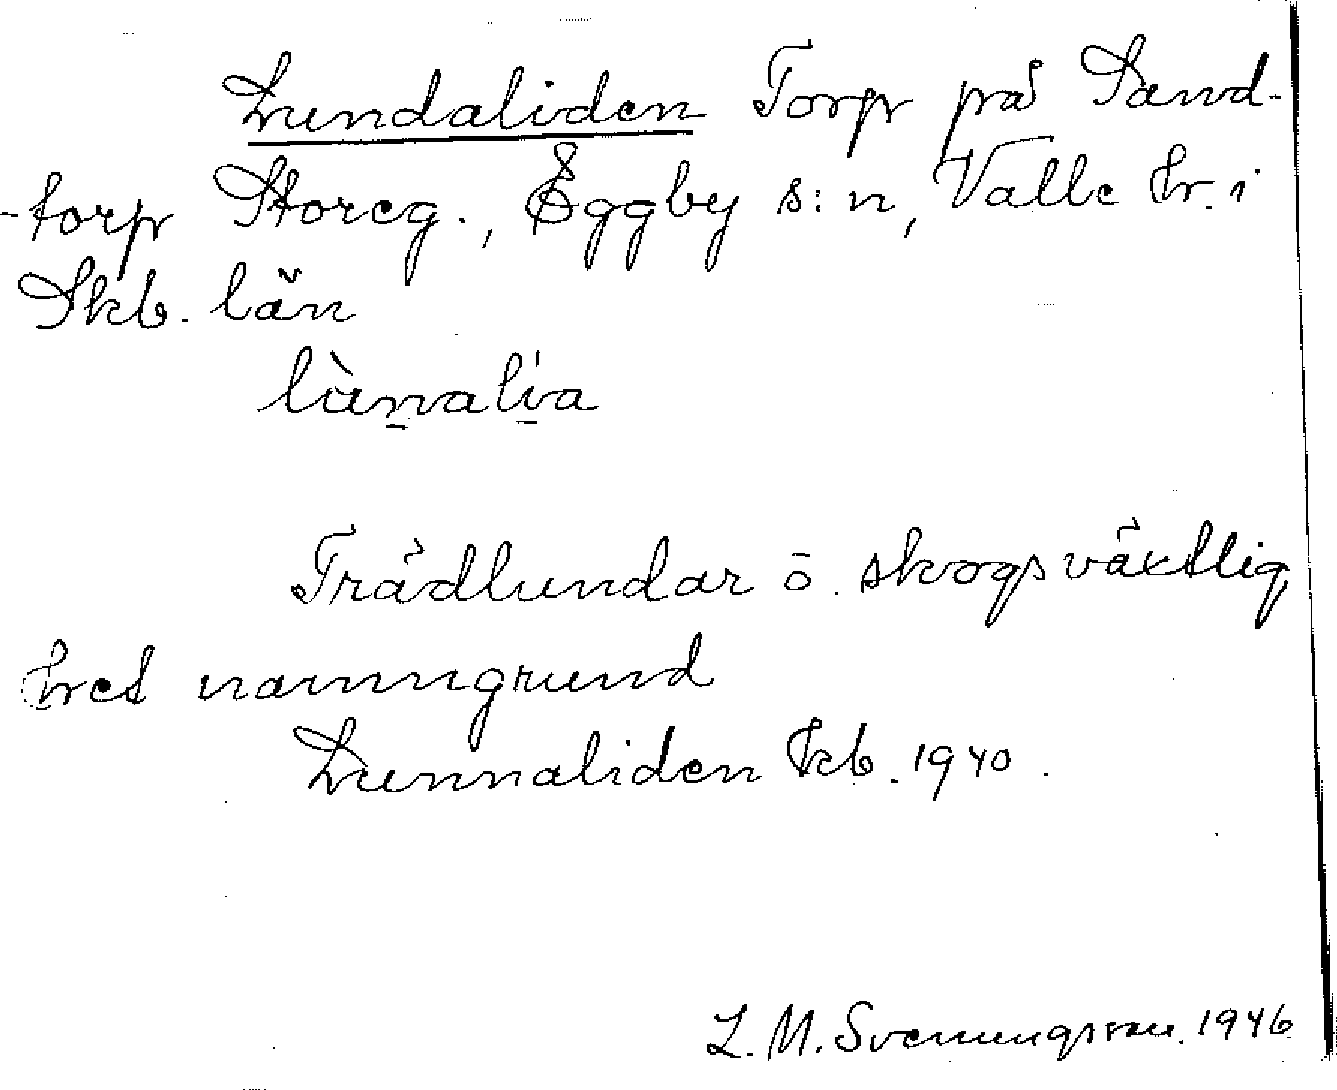 Lundaliden Torp på Sand-
-torp Storeg., Eggby s:n, Valle hr. i
Skb. län
lùnalía
Trädlundar o. skogsväxtlig
het namngrund
Lunnaliden kb. 1940.
L. M. Svenungsson. 1946